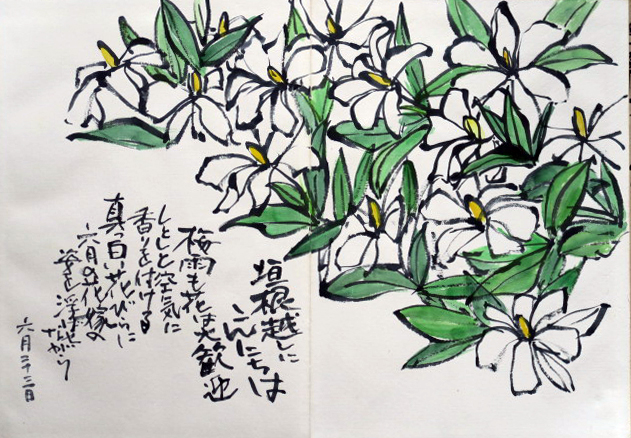 垣根越しに
こんにちは
梅雨も花は大歓迎
しとしと空気に
香りを付ける
真っ白い花びらに
六月の花嫁の
姿を浮ばせながら
六月二十三日